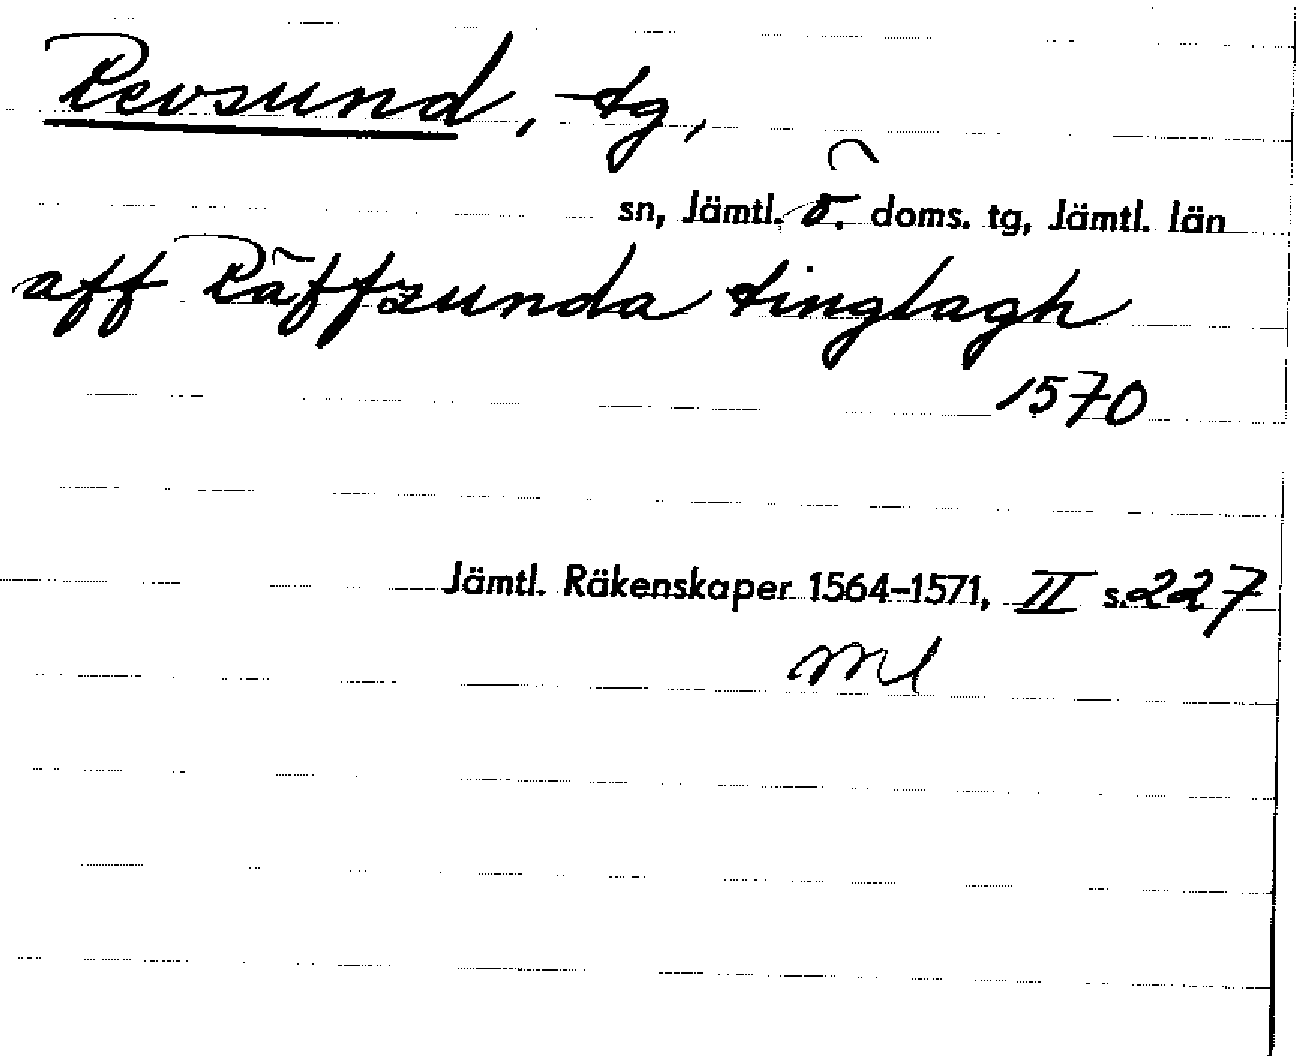 Revsund, tg,
sn, Jämtl. ö. doms. tg, Jämtl. län
aff Räffzunda tinglagh
1570
Jämtl. Räkenskaper 1564–1571, II s. 227